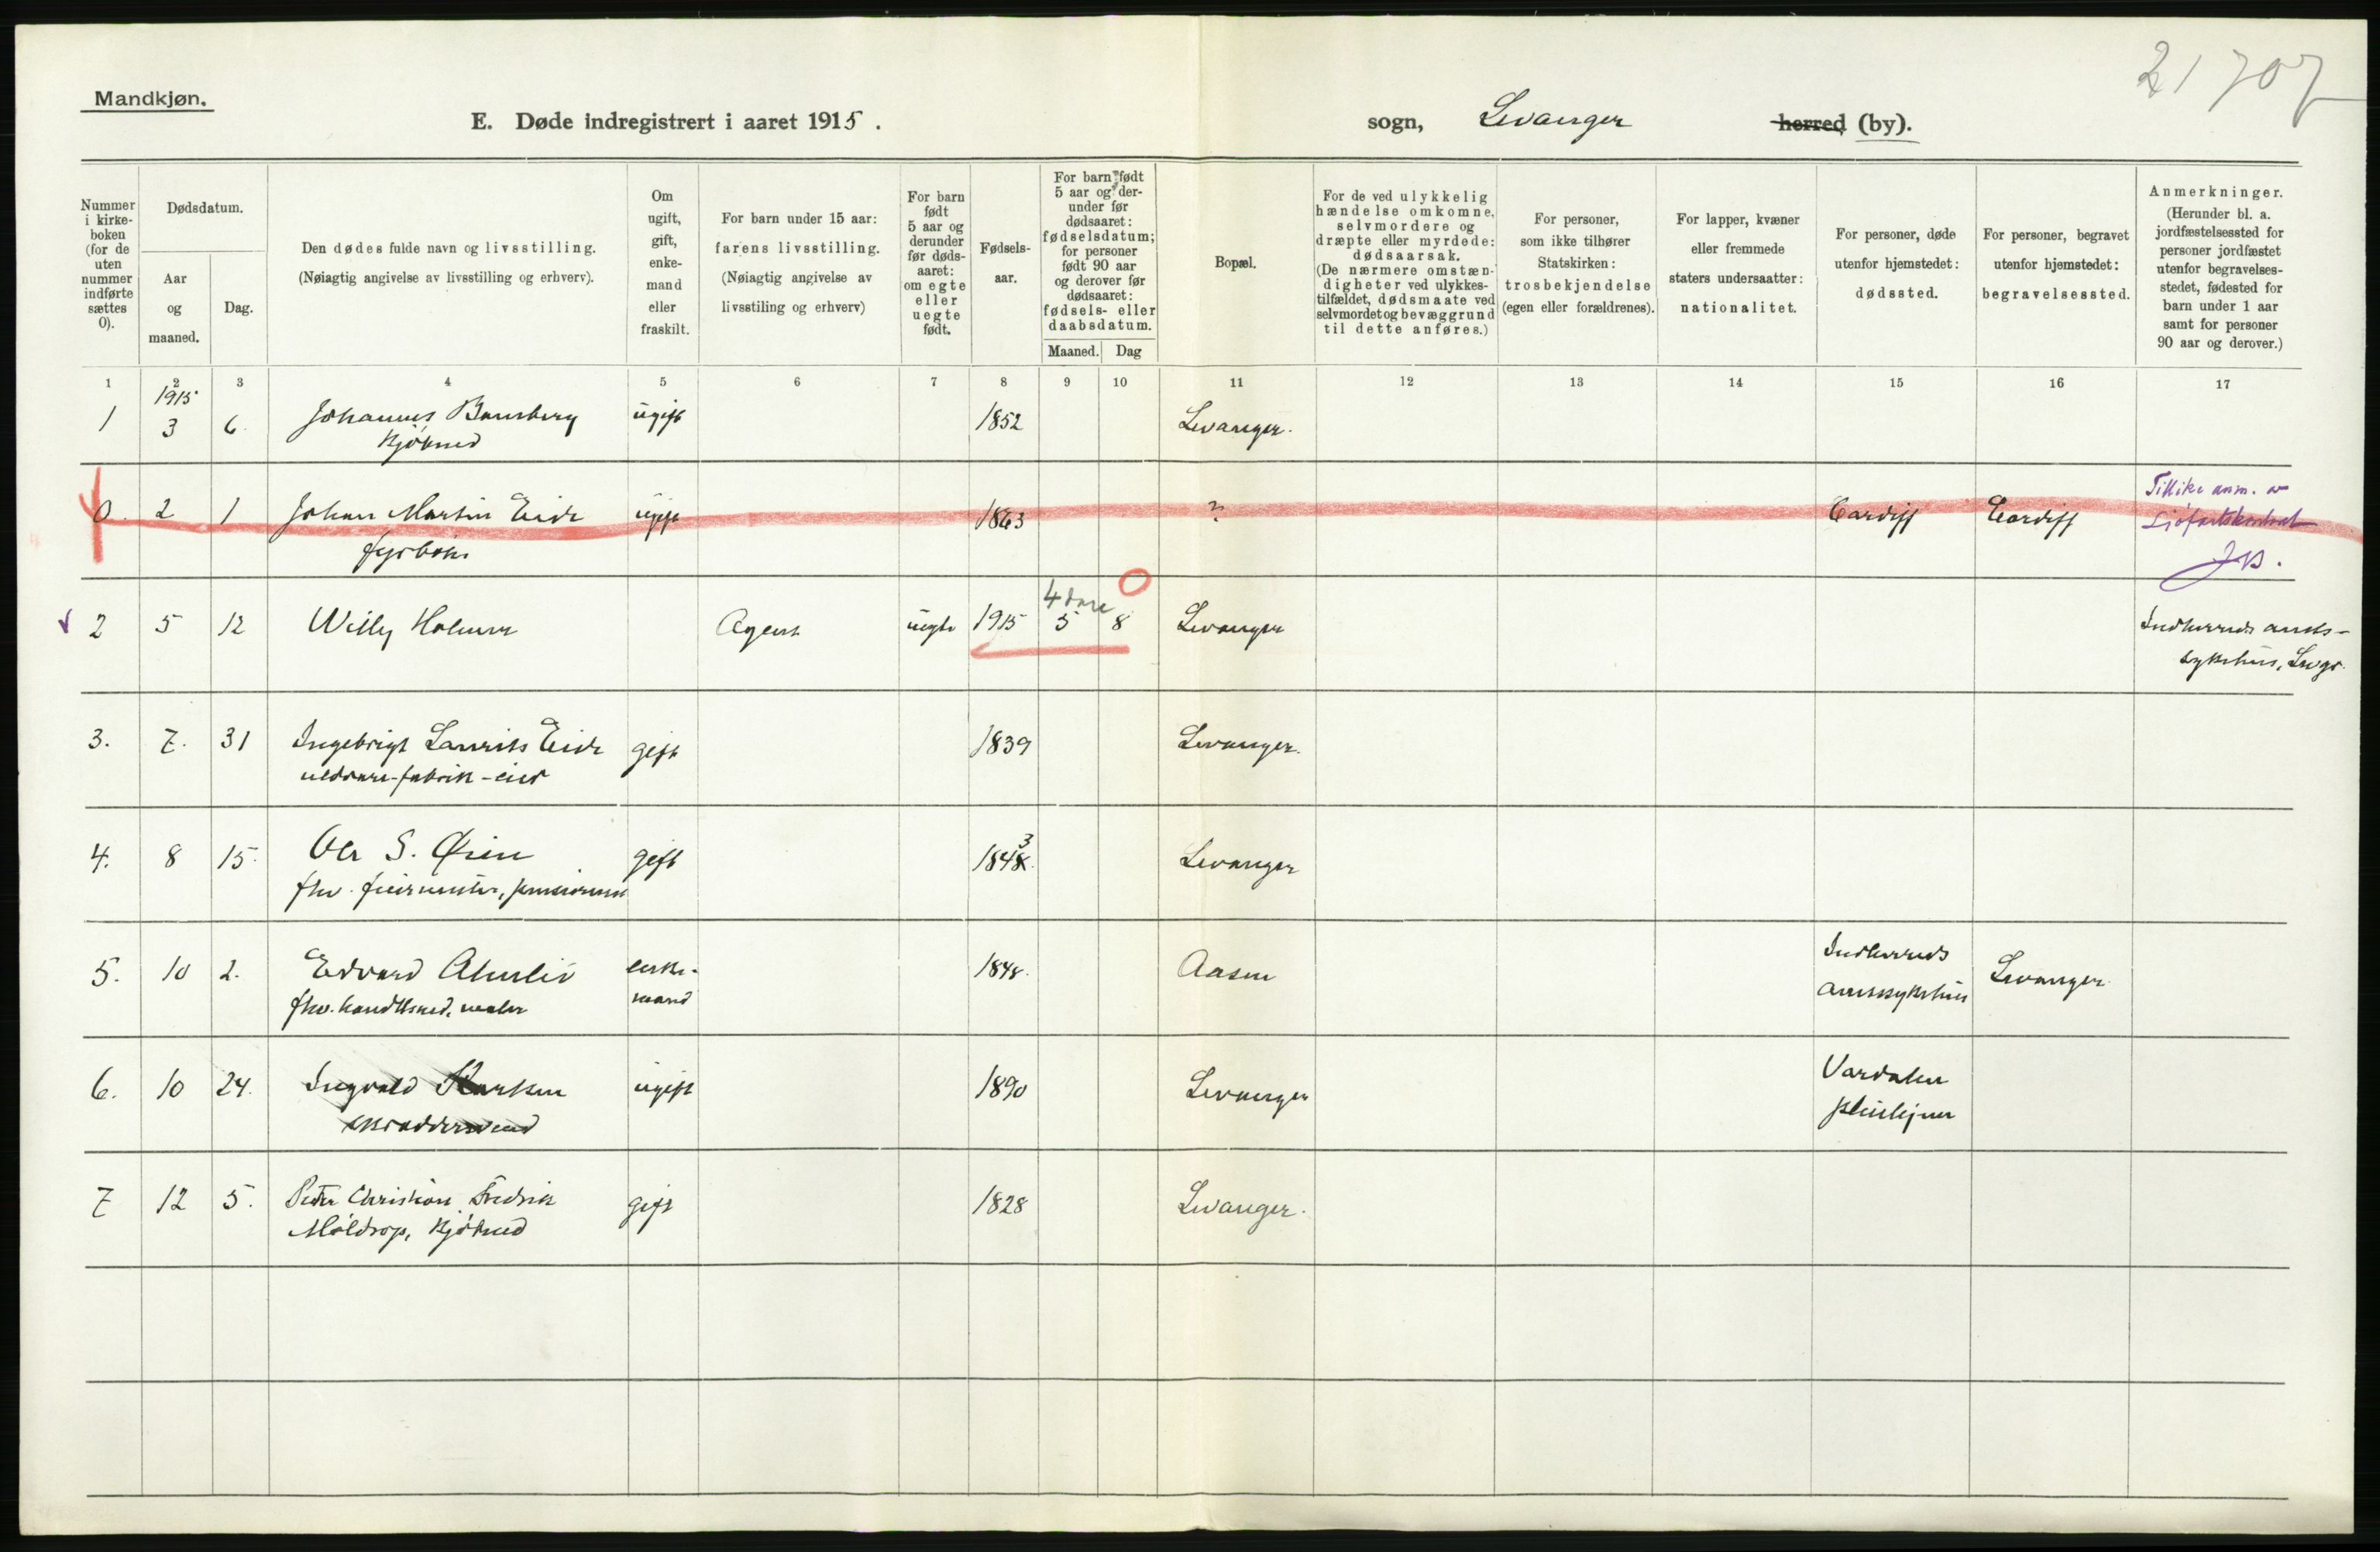 21707
Mandkjøn.
E. Døde indregistrert i aaret 1915.
sogn, Levanger herred (by).
Nummer i kirke-boken (for de uten nummer indførte sættes 0).
Dødsdatum.
Aar og maaned.
Dag.
Den dødes fulde navn og livsstilling.
(Nøiagtig angivelse av livsstilling og erhverv).
Om ugift, gift, enke-mand eller fraskilt.
For barn under 15 aar:
farens livsstilling.
(Nøiagtig angivelse av livsstiling og erhverv)
For barn født 5 aar og derunder før døds-aaret: om egte eller uegte født.
Fødsels-aar.
For barn født 5 aar og der-under før dødsaaret: fødselsdatum; for personer født 90 aar og derover før dødsaaret: fødsels- eller daabsdatum.
Maaned. Dag
Bopæl.
For de ved ulykkelig hændelse omkomne, selvmordere og dræpte eller myrdede: dødsaarsak. (De nærmere omstæn-digheter ved ulykkes-tilfældet, dødsmaate ved selvmordet og bevæggrund til dette anføres.)
For personer, som ikke tilhører Statskirken: trosbekjendelse (egen eller forældrenes).
For lapper, kvæner eller fremmede staters undersaatter: nationalitet.
For personer, døde utenfor hjemstedet: dødssted.
For personer, begravet utenfor hjemstedet: begravelsessted.
Anmerkninger.
(Herunder bl. a. jordfæstelsessted for personer jordfæstet utenfor begravelses-stedet, fødested for barn under 1 aar samt for personer 90 aar og derover.)
1 2 3 4 5 6 7 8 9 10 11 12 13 14 15 16 17
1915
1 3 6 Johannes ugift 1852 Levanger.
Kjøbmd
0. 2 1 Johan Martin Eide ugift 1863 ? Cardiff Cardiff Tillike anm. av
fyrbøter Sjöfartskontoret
JB.
4 dage 0
2 5 12 Willy Holmen Agent uegte 1915 5 8 Levanger Indherreds amts-
sykehus, Levgr.
3. 7. 31 Ingebrigt Laurits Eide gift 1839 Levanger.
uldvare-fabrik-eier
3
4. 8 15. Ole S. Øien gift 1848. Levanger
fhv. feiermester, pensionist
5. 10 2. Edvard Almlid enke- 1848. Aasen Indherreds Levanger.
fhv. handelsmd, maler mand amtssykehus
6. 10 24. Ingvald Karlsen ugift 1890 Levanger Værdalen
skræddersvend pleiehjem
7 12 5. Peter Christian Fredrik gift 1828 Levanger.
Møldrop, Kjøbmd